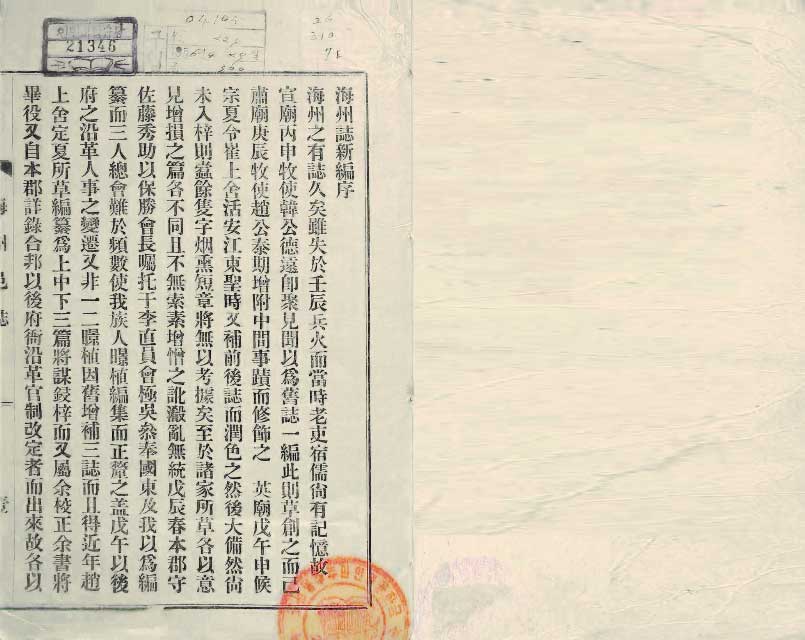 海州誌新編序
海州之有誌久矣雖失於壬辰兵火而當時老吏宿儒尙有記憶故
宣廟丙申牧使韓公德遠卽聚見聞以爲舊誌一編此則草創之而已
肅廟庚辰牧使趙公泰期增附中間事蹟而修飾之 英廟戊午申候
宗夏令崔上舍活安江東聖時又補前後誌而潤色之然後大備然尙
未入梓則蠹餘隻字烟熏短章將無以考據矣至於諸家所草各以意
見增損之篇各不同且不無索素增憎之訛澱亂無統戊辰春本郡守
佐藤秀助以保勝會長囑托于李直員會極吳參奉國東及我以爲編
纂而三人總會難於頻數使我族人曔植編集而正釐之盖戊午以後
府之沿革人事之變遷又非一二曔植因舊增補三誌而且得近年趙
上舍定夏所草編纂爲上中下三篇將謀鋟梓而又屬余校正余書將
畢役又自本郡詳錄合邦以後府衙沿革官制改定者而出來故各以
海州邑誌 一
21346